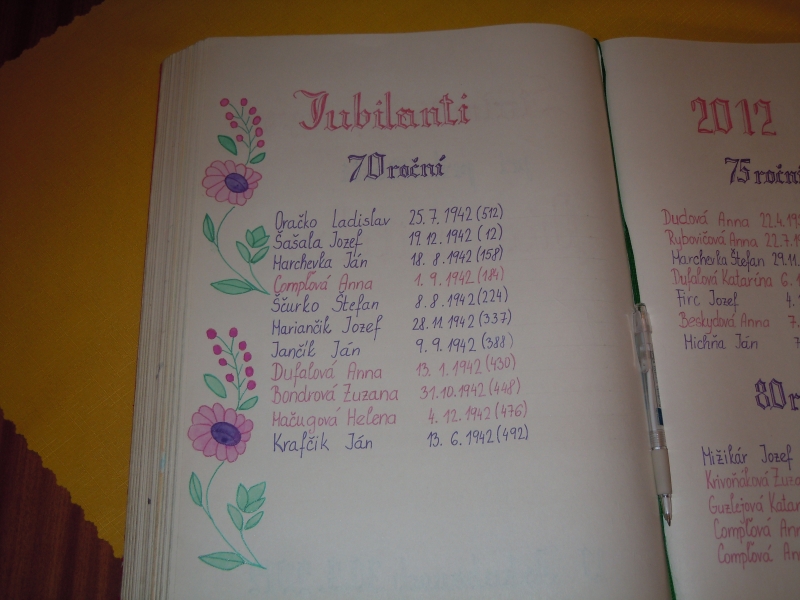 Jubilanti
70 roční
Oračko Ladislav 25. 7. 1942 (512)
Šašala Jozef 19. 12. 1942 (12)
Marchevka Ján 18. 8. 1942 (158)
Compľová Anna 1. 9. 1942 (184)
Ščurko Štefan 8. 8. 1942 (224)
Mariančik Jozef 28. 11. 1942 (337)
Jančik Ján 9. 9. 1942 (388)
Dufaľová Anna 13. 1. 1942 (430)
Bondrová Zuzana 31. 10. 1942 (448)
Hačugová Helena 4. 12. 1942 (476)
Krafčik Ján 13. 6. 1942 (492)
2012
75 roční
Dudová Anna 22.4.
Rybovičová Anna 22.7.
Marchevka Štefan 29.11.
Dufaľová Katarína 6.
Firc Jozef 4.
Beskydová Anna 7.
Michňa Ján
80
Mižikár Jozef
Krivoňáková
Guzlejová
Compľová
Compľová